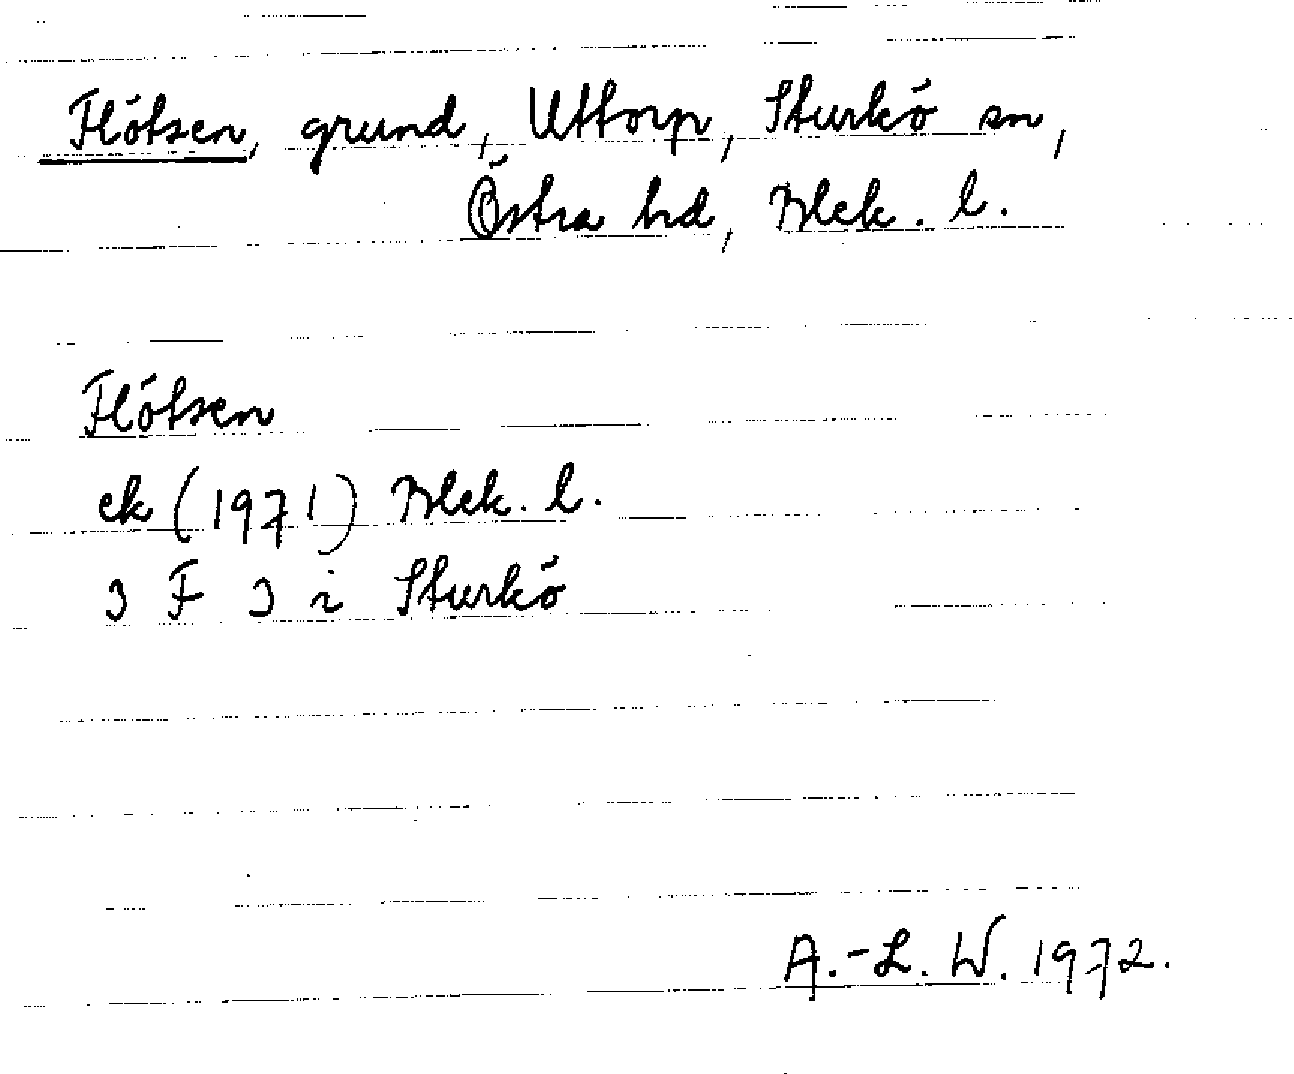 Flötsen, grund, Uttorp, Sturkö sn,
Östra hd, Blek. l.
Flötsen
ek (1971) Blek. l.
3 F 3 i Sturkö
A.-L. W. 1972.